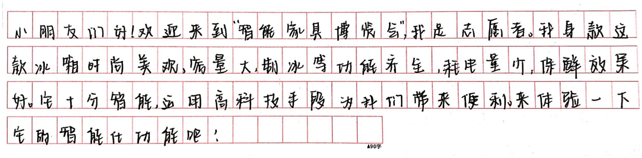 小朋友们好!欢迎来到"智能家具博览会",我是志愿者。我身款这
款冰箱时尚美观,容量大,制冰等功能齐全,耗电量少,保鲜效果
好。它十分智能,运用高科技手段为我们带来便利。来体验一下
它的智能化功能吧!